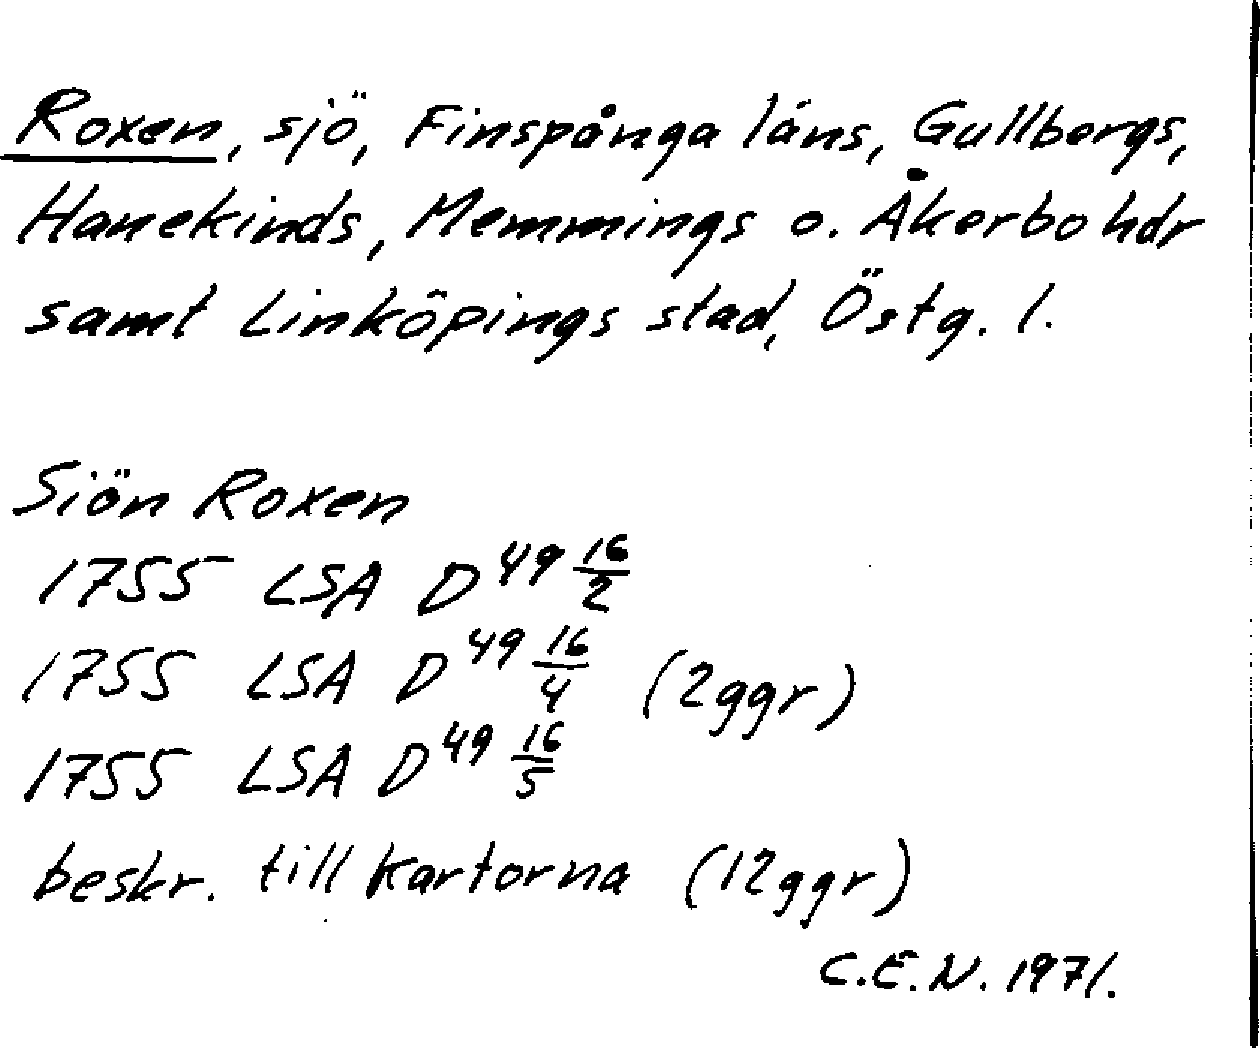 Roxen, sjö, Finspånga läns, Gullbergs,
Hanekinds, Memmings o. Åkerbo hdr
samt Linköpings stad, Östg. l.
Siön Roxen
1755 LSA D 49 16/2
1755 LSA D 49 16/4 (2ggr)
1755 LSA D 49 16/5
beskr. till kartorna (12ggr)
C.E.N. 1971.